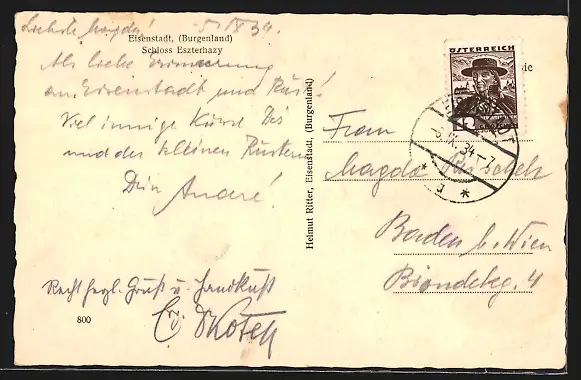 Liebste Magda! 5/IX 34.
Eisenstadt, (Burgenland)
Schloss Eszterhazy
Als liebe Erinnerung
an Eisenstadt und Rust!
Viel innige Küsse Dir
und der kleinen
Dein André!
Recht hrzl. Gruß u. Handkuß
800
Helmut Ritter, Eisenstadt, (Burgenland)
ÖSTERREICH
12
-6.IX.34-7
Frau
Magda
Baden b. Wien
4